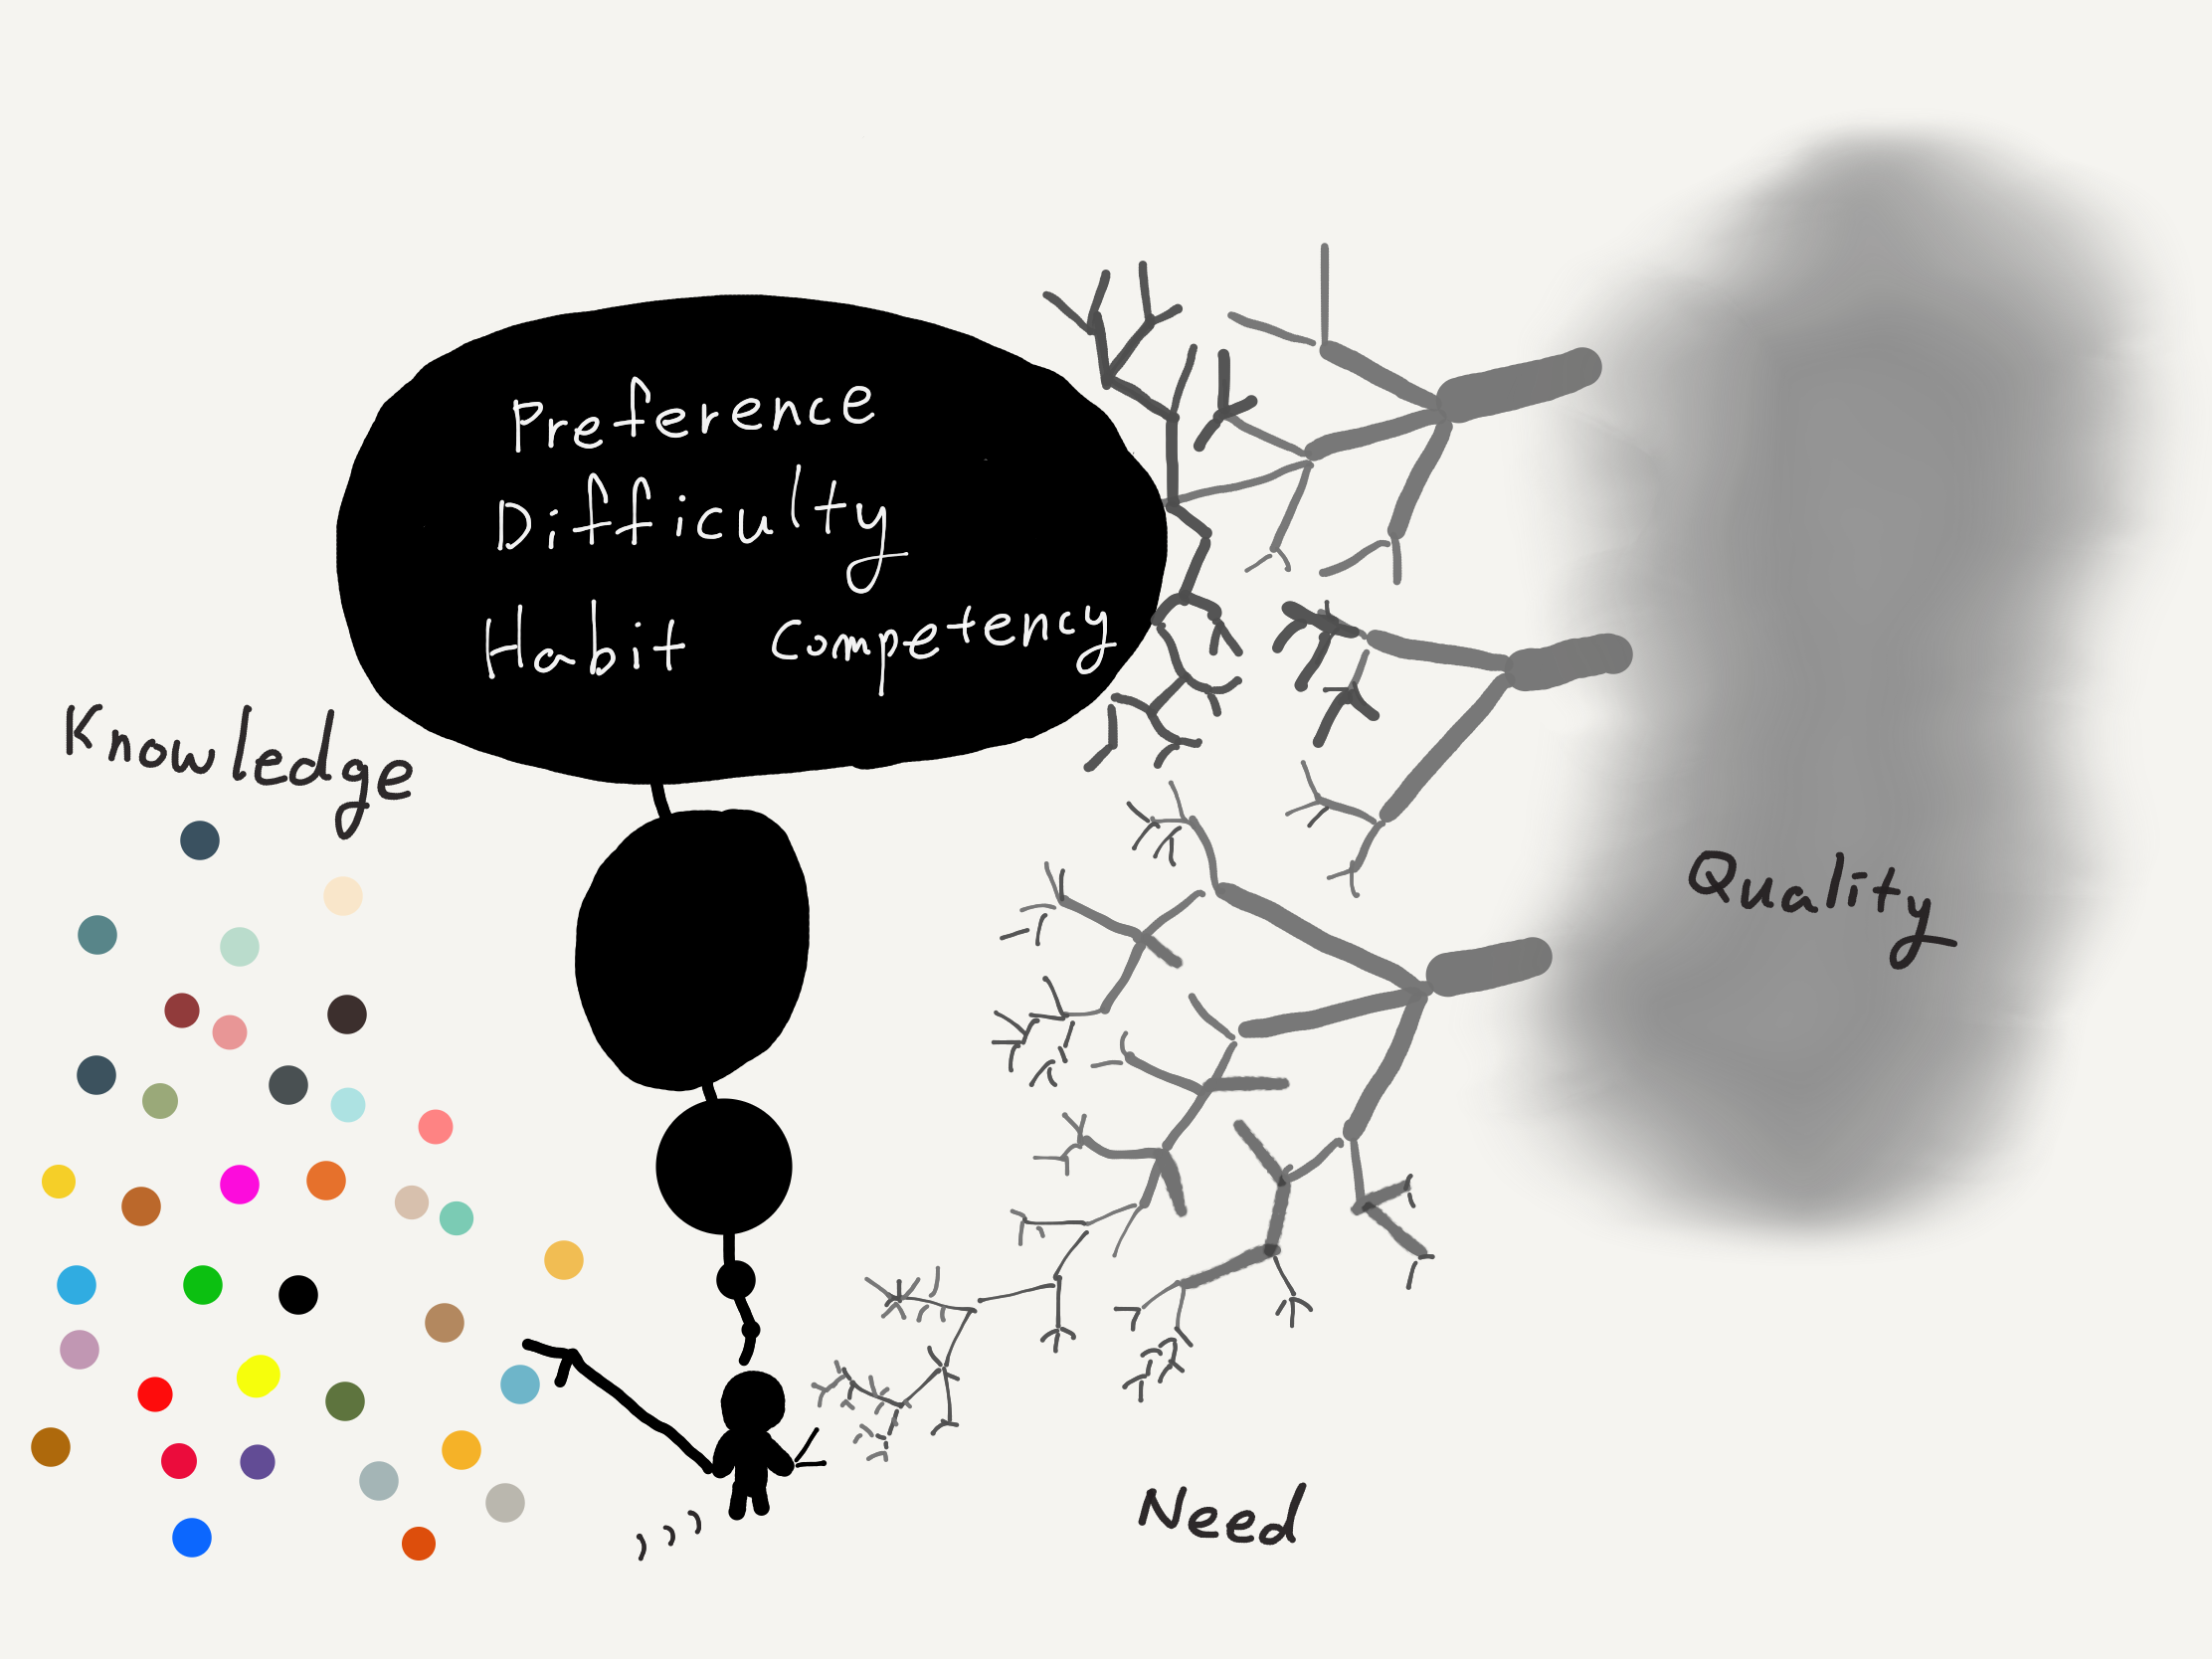 Preference
Difficulty
Habit Competency
Knowledge
Quality
Need